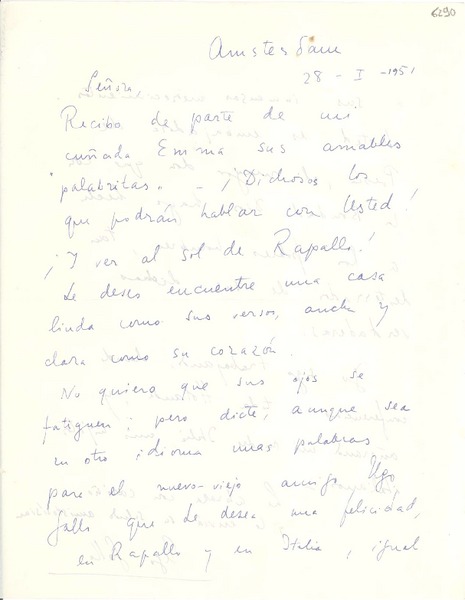 6290
Amsterdam
28 - I - 1951
Señora
Recibo de parte de mi
cuñada Emma sus amables
"palabritas" - ¡Dichosos los
que podrán hablar con Usted!
¡Y ver al sol de Rapallo!
Le deseo encuentre una casa
linda como sus versos, ancha y
clara como su corazón.
No quiero que sus ojos se
fatiguen; pero dicte, aunque sea
en otro idioma unas palabras
para el nuevo-viejo amigo Ugo
Gallo que le desea una felicidad,
en Rapallo y en Italia, igual